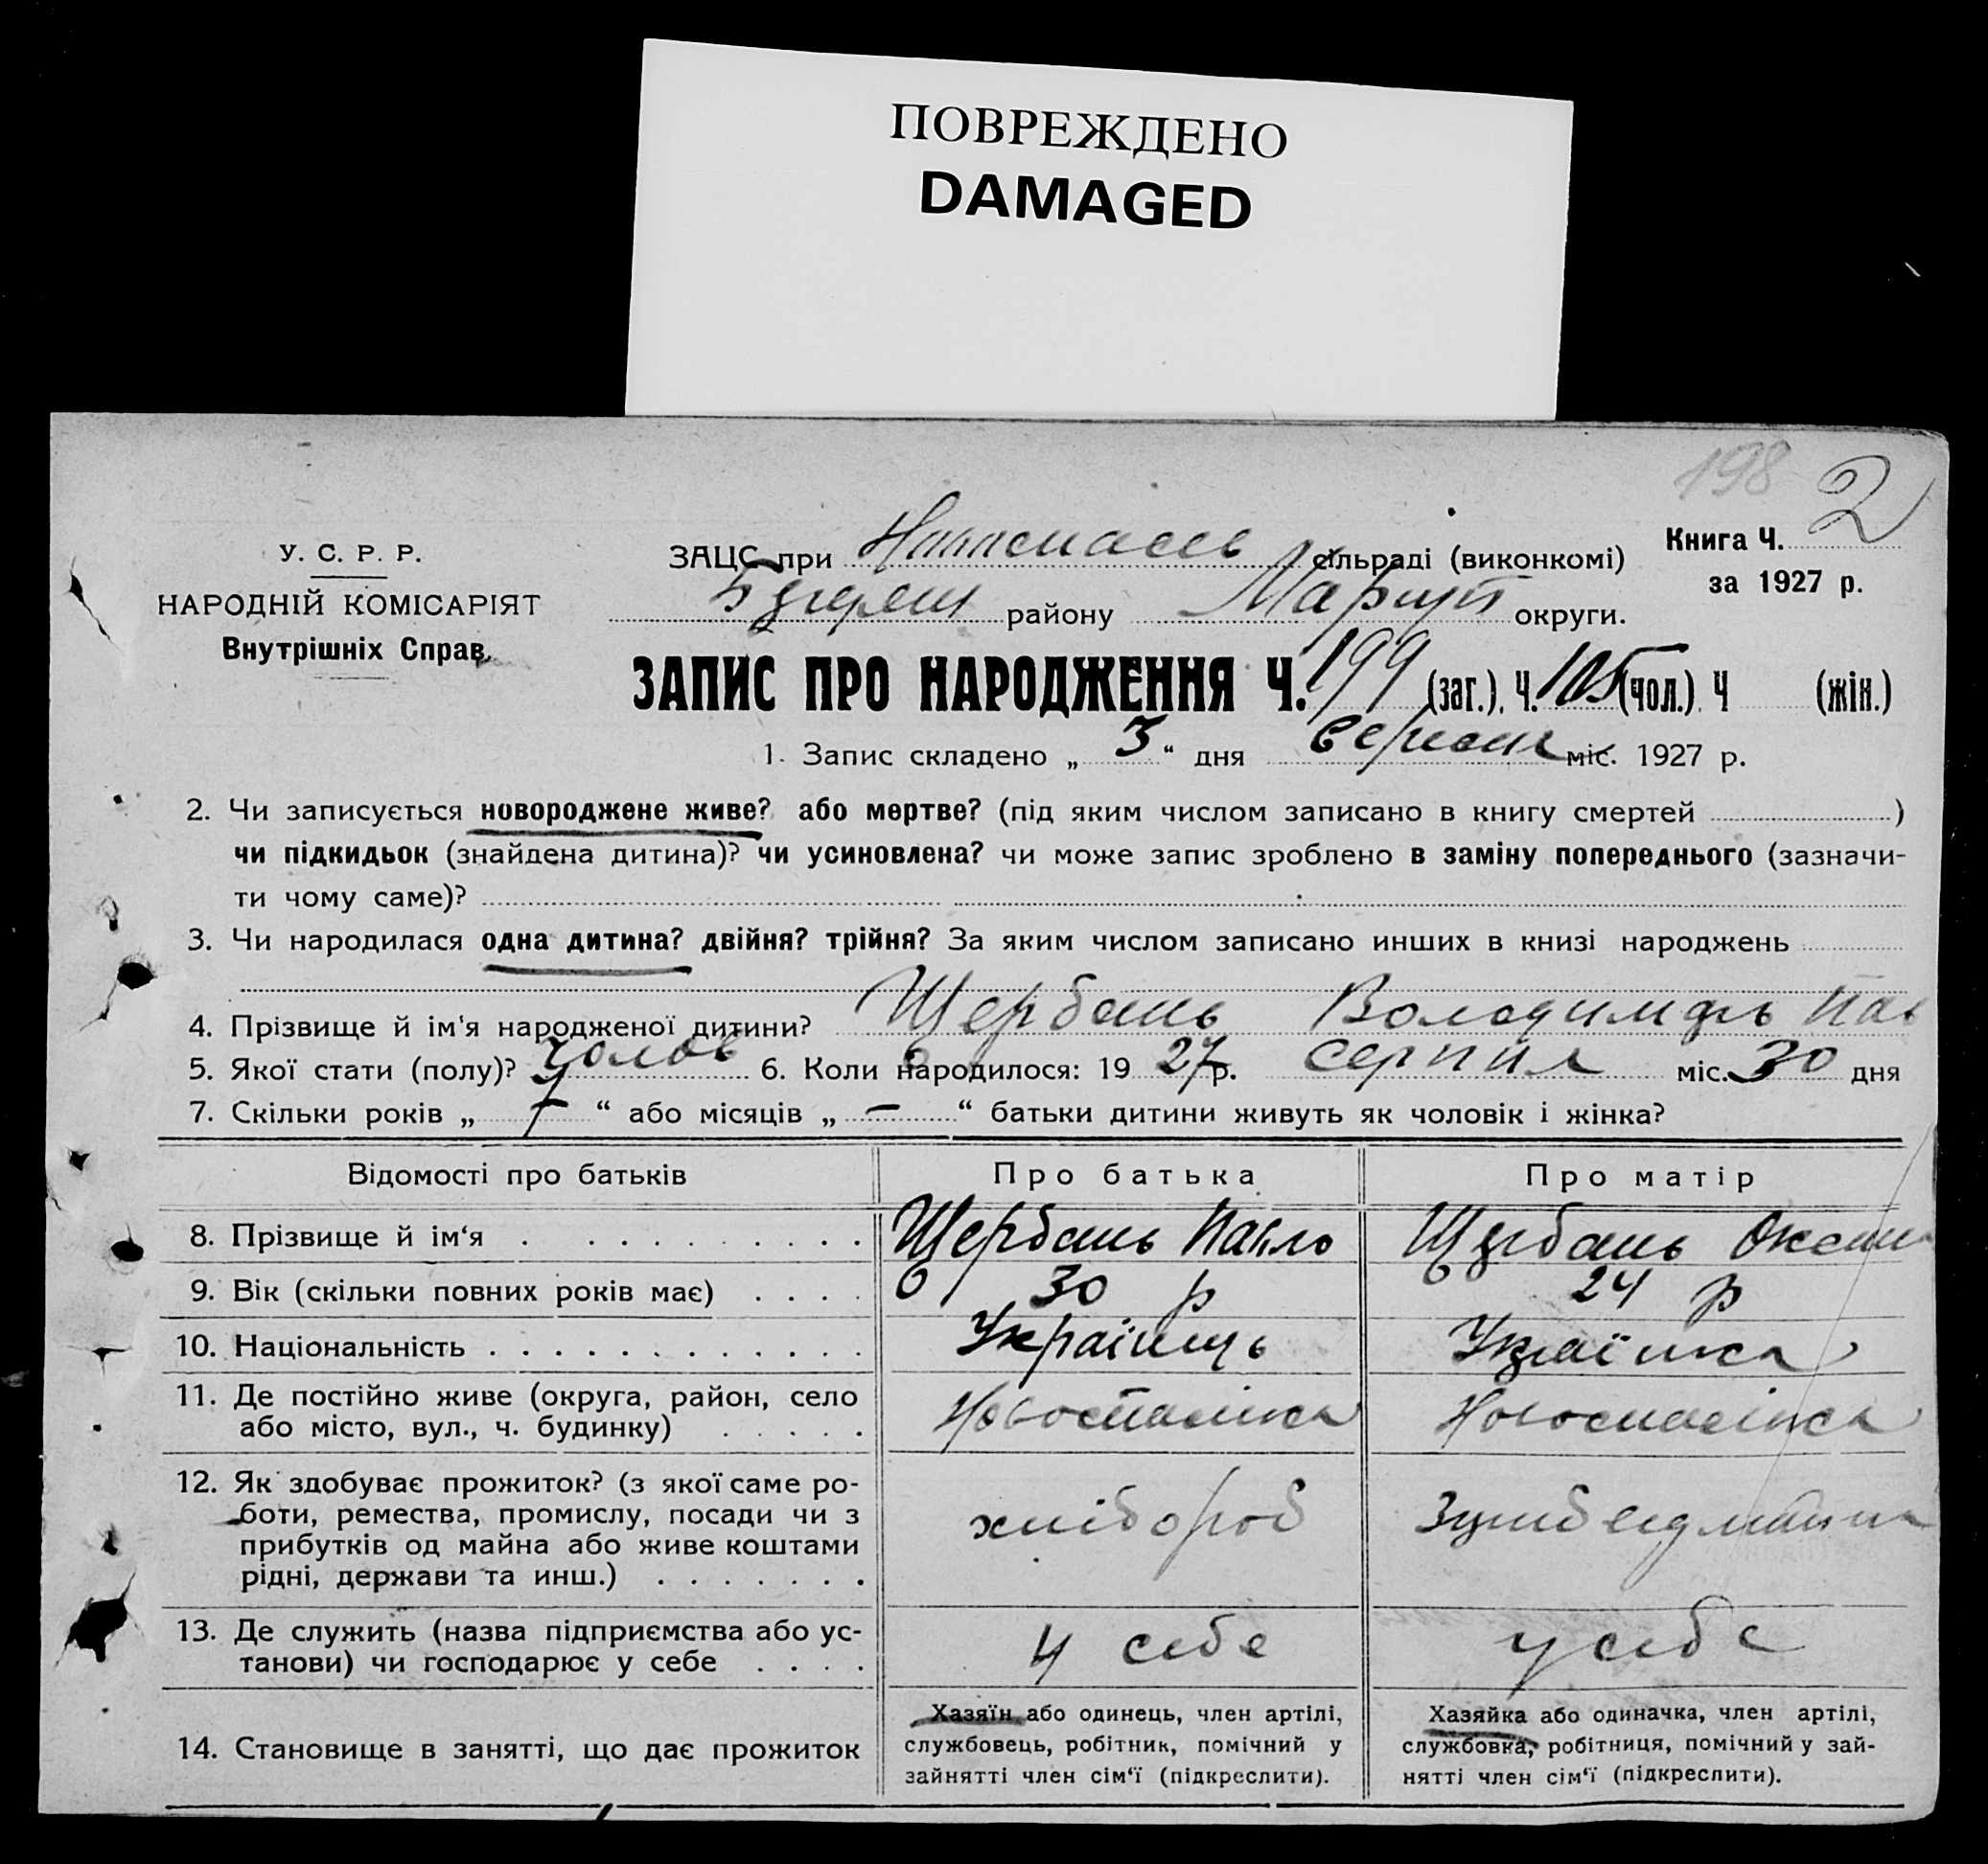 ПОВРЕЖДЕНО
DAMAGED
198 2
У. С. Р. Р.
НАРОДНІЙ КОМІСАРІЯТ
Внутрішніх Справ.
ЗАЦС при сільраді (виконкомі)
Книга Ч.
за 1927 р.
району Маріуп округи.
ЗАПИС ПРО НАРОДЖЕННЯ Ч. 199 (заг.), Ч. 105 (чол.) Ч (жін.)
1. Запис складено „ 3 “ дня вересня міс. 1927 р.
2. Чи записується новороджене живе? або мертве? (під яким числом записано в книгу смертей )
чи підкидьок (знайдена дитина)? чи усиновлена? чи може запис зроблено в заміну попереднього (зазначи-
ти чому саме)?
3. Чи народилася одна дитина? двійня? трійня? За яким числом записано инших в книзі народжень
4. Прізвище й ім'я народженої дитини? Щербань Володимфь Пав
5. Якої стати (полу)? чолов 6. Коли народилося: 19 27 р. серпня міс. 30 дня
7. Скільки років „ – “ або місяців „ – “ батьки дитини живуть як чоловік і жінка?
Відомості про батьків Про батька Про матір
8. Прізвище й ім‘я Щербань Павло Щербань Оксана
9. Вік (скільки повних років має) 30 р 24 р
10. Національність Українць Українка
11. Де постійно живе (округа, район, село
або місто, вул., ч. будинку) Новоспасівка Новоспасівка
12. Як здобуває прожиток? (з якої саме ро-
боти, ремества, промислу, посади чи з
прибутків од майна або живе коштами
рідні, держави та инш.) хлібороб
13. Де служить (назва підприємства або ус-
танови) чи господарює у себе у себе у себе
14. Становище в занятті, що дає прожиток
Хазяїн або одинець, член артілі,
службовець, робітник, помічний у
зайнятті член сім‘ї (підкреслити).
Хазяйка або одиначка, член артілі,
службовка, робітниця, помічний у зай-
нятті член сім‘ї (підкреслити).